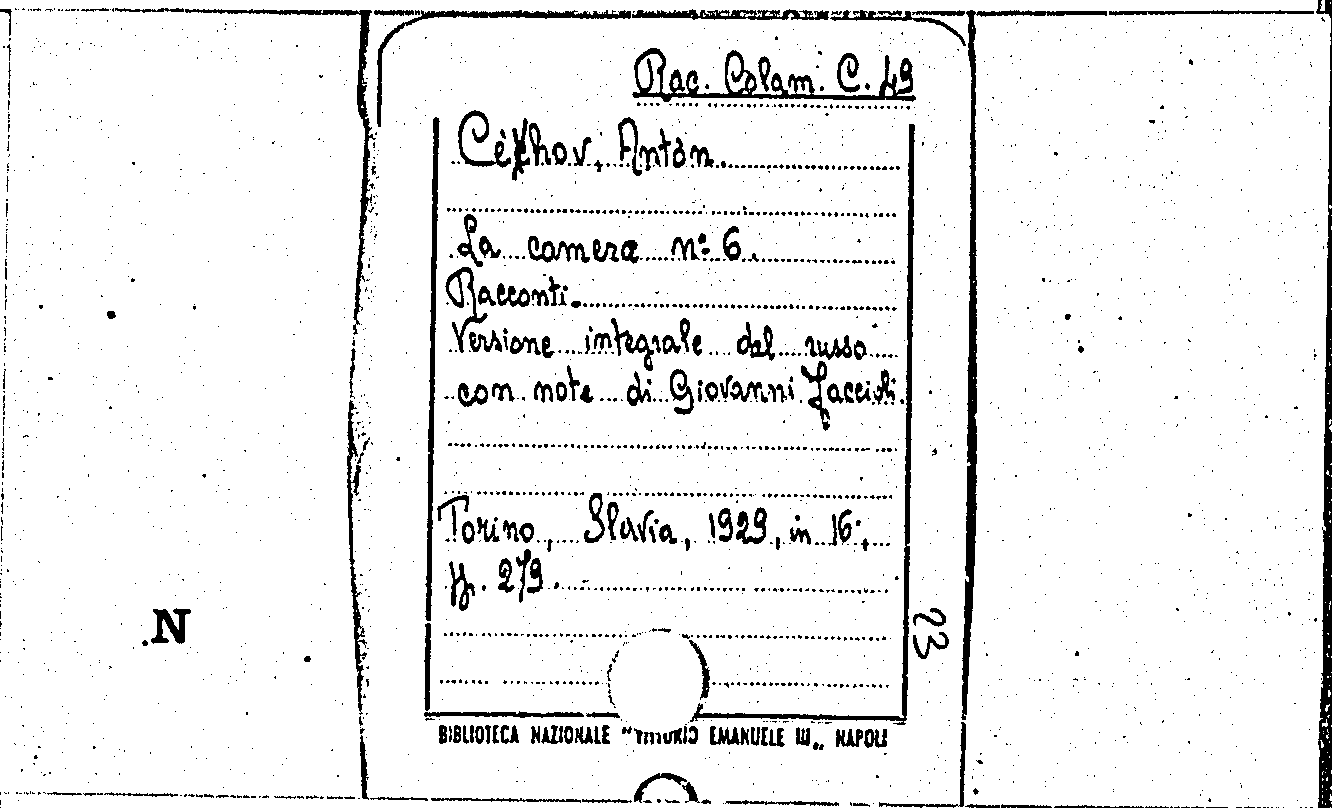 Rac. Colam. C. 49
Cékhov, Antòn.
La camera nº 6.
Racconti.
Versione integrale dal russo
con note di Giovanni Faccioli.
Torino, Slavia, 1929, in 16º,
pp. 279.
23
N
BIBLIOTECA NAZIONALE "VITTORIO EMANUELE III„ NAPOLI